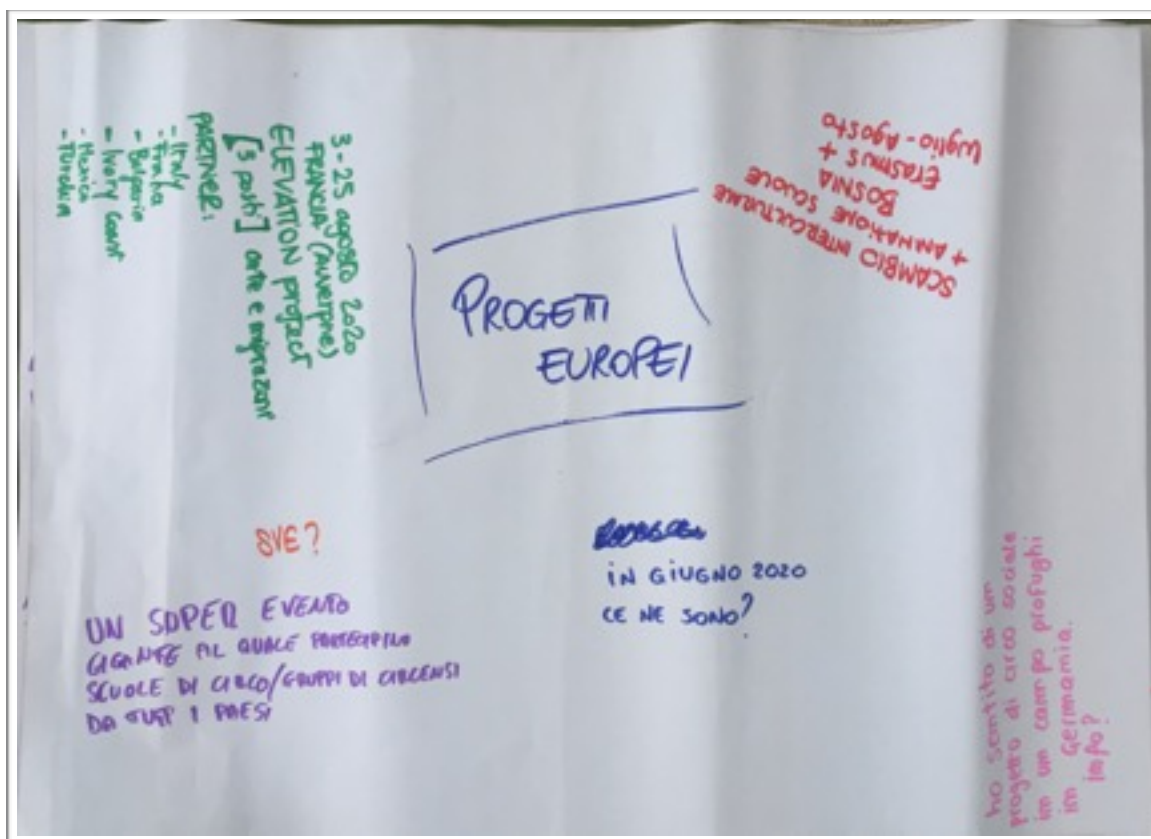 PROGETTI
EUROPEI
3-25 agosto 2020
FRANCIA (Auvergne)
ELEVATION project
[3 posti] arte e migrazioni
PARTNER:
- Italy
- Francha
- Bulgaria
- Ivory Coast
- Mexico
- Turchia
SCAMBIO INTERCULTURALE
+ ANIMAZIONE SCUOLE
BOSNIA
Erasmus +
Luglio - Agosto
SVE?
UN SUPER EVENTO
GIGANTE AL QUALE PARTECIPINO
SCUOLE DI CIRCO/GRUPPI DI CIRCENSI
DA TUTTI I PAESI
IN GIUGNO 2020
CE NE SONO?
ho sentito di un
progetto di circo sociale
in un campo profughi
in Germania.
info?